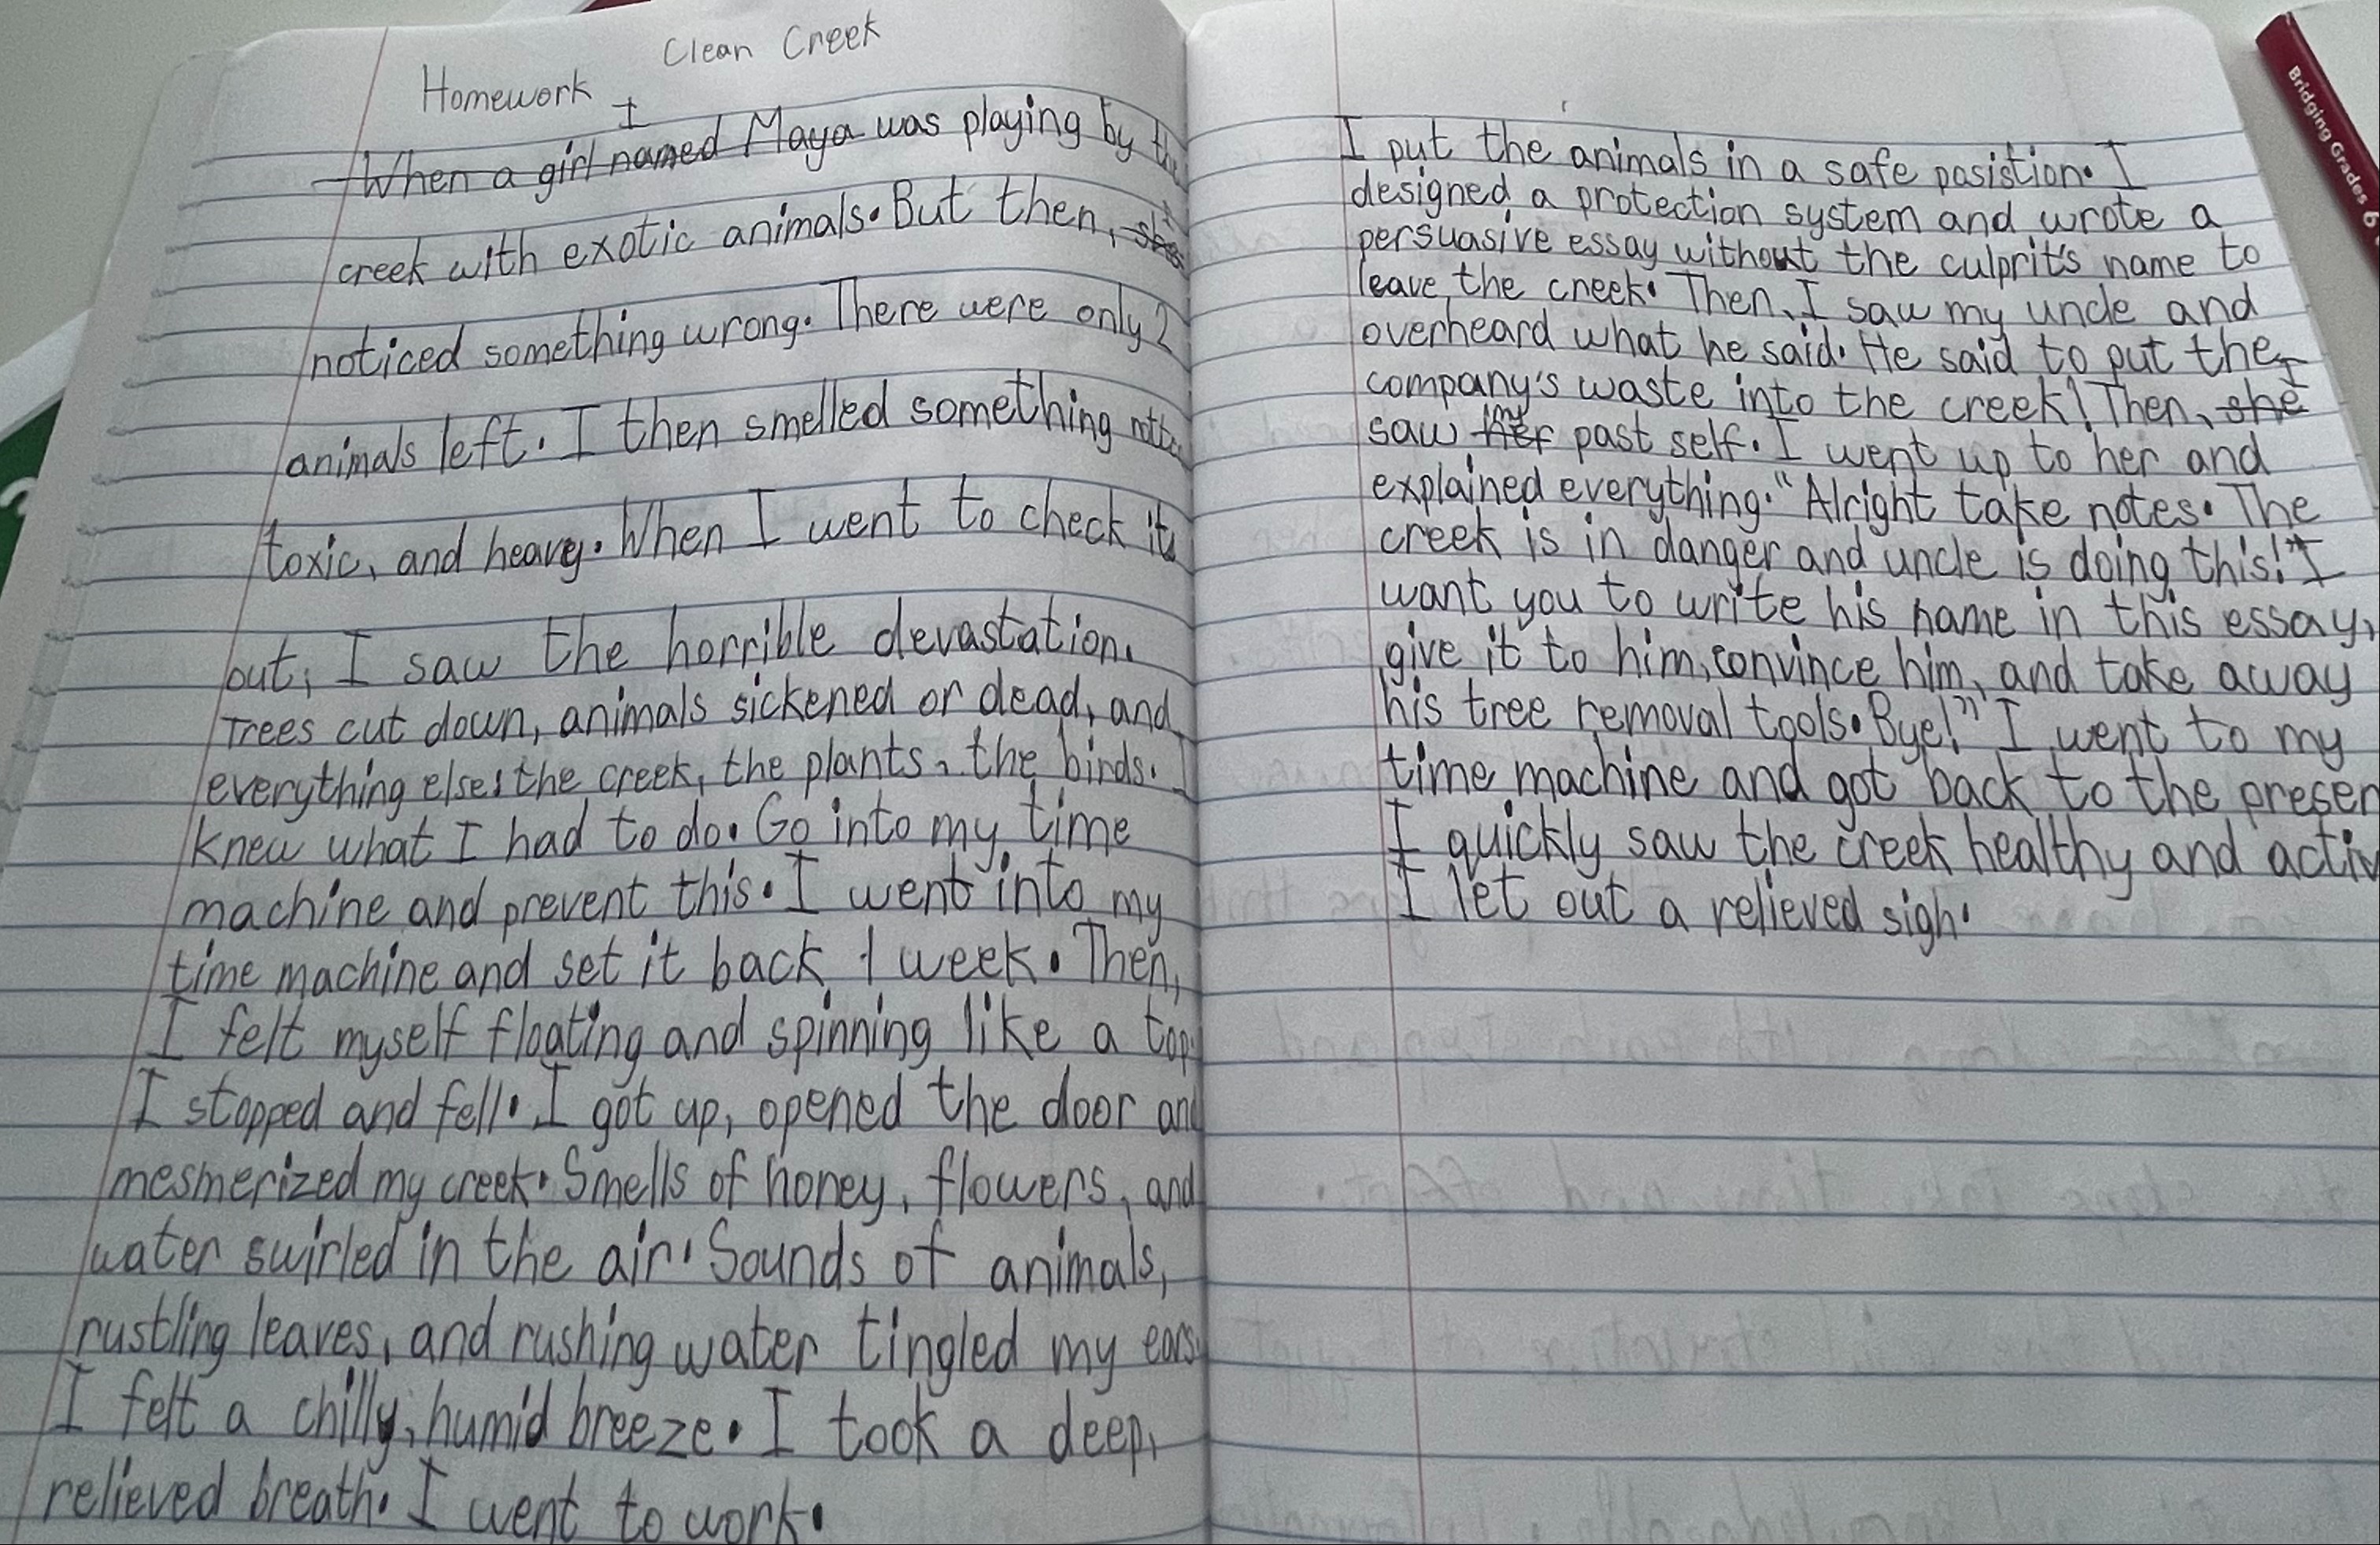 Clean Creek
Homework
I
When a girl named Maya was playing by the
creek with exotic animals. But then, she I
noticed something wrong. There were only 2
animals left. I then smelled something
toxic, and heavy. When I went to check it
out, I saw the horrible devastation.
Trees cut down, animals sickened or dead, and
everything else: the creek, the plants, the birds. I
knew what I had to do. Go into my time
machine and prevent this. I went into my
time machine and set it back 1 week. Then,
I felt myself floating and spinning like a top.
I stopped and fell. I got up, opened the door and
mesmerized my creek. Smells of honey, flowers, and
water swirled in the air. Sounds of animals,
rustling leaves, and rushing water tingled my ears.
I felt a chilly, humid breeze. I took a deep,
relieved breath. I went to work.
I put the animals in a safe posistion. I
designed a protection system and wrote a
persuasive essay without the culprit's name to
leave the creek. Then, I saw my uncle and
overheard what he said. He said to put the
company's waste into the creek! Then, she I
saw her my past self. I went up to her and
explained everything. "Alright take notes. The
creek is in danger and uncle is doing this!" I
want you to write his name in this essay,
give it to him, convince him, and take away
his tree removal tools. Bye!" I went to my
time machine and got back to the presen
I quickly saw the creek healthy and activ
I let out a relieved sigh.
Bridging Grades 6